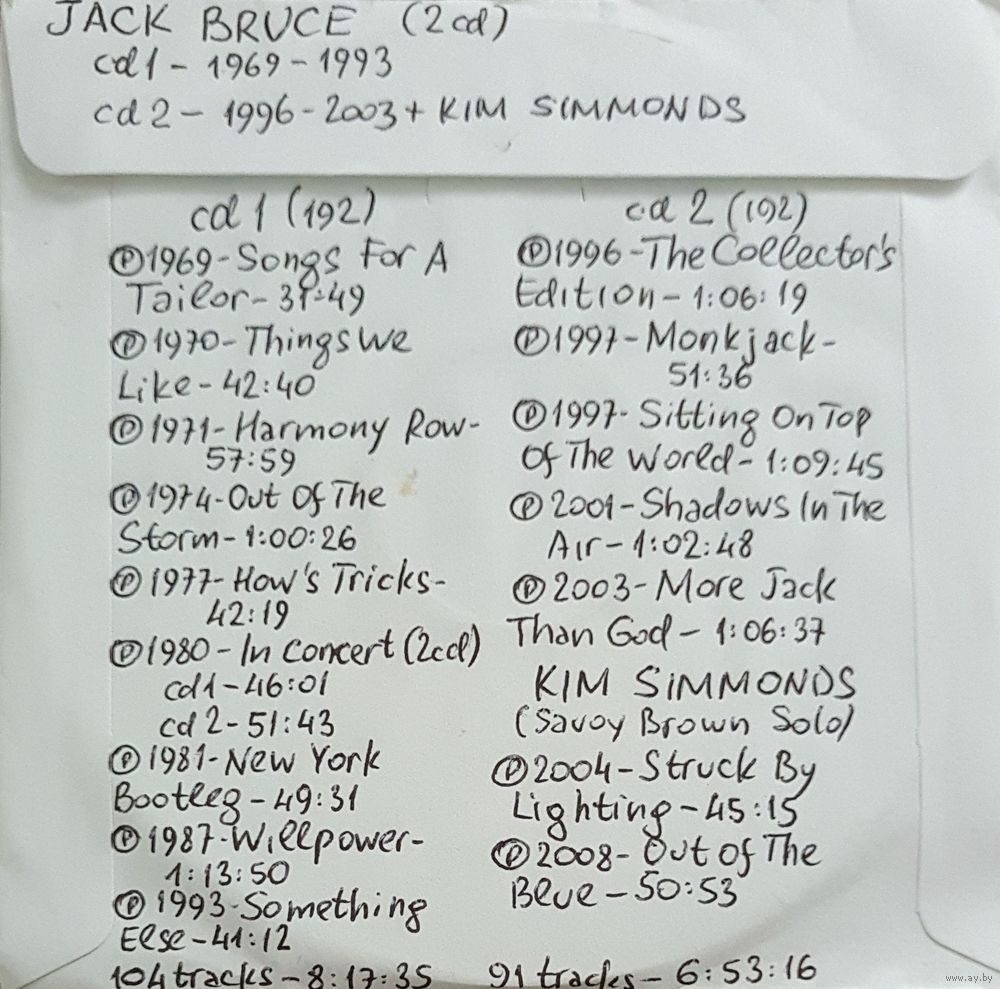 JACK BRUCE (2cd)
cd1 - 1969 - 1993
cd2 - 1996 - 2003 + KIM SIMMONDS
cd 1 (192)
Ⓟ1969 - Songs For A
Tailor - 31:49
Ⓟ1970 - Things We
Like - 42:40
Ⓟ1971 - Harmony Row -
57:59
Ⓟ1974 - Out Of The
Storm - 1:00:26
Ⓟ1977 - How's Tricks -
42:19
Ⓟ1980 - In Concert (2cd)
cd1 - 46:01
cd2 - 51:43
Ⓟ1981 - New York
Bootleg - 49:31
Ⓟ1987 - Willpower -
1:13:50
Ⓟ1993 - Something
Else - 41:12
104 tracks - 8:17:35
cd 2 (192)
Ⓟ1996 - The Collector's
Edition - 1:06:19
Ⓟ1997 - Monkjack -
51:36
Ⓟ1997 - Sitting On Top
Of The World - 1:09:45
Ⓟ2001 - Shadows In The
Air - 1:02:48
Ⓟ2003 - More Jack
Than God - 1:06:37
KIM SIMMONDS
(Savoy Brown Solo)
Ⓟ2004 - Struck By
Lighting - 45:15
Ⓟ2008 - Out Of The
Blue - 50:53
91 tracks - 6:53:16
www.ay.by